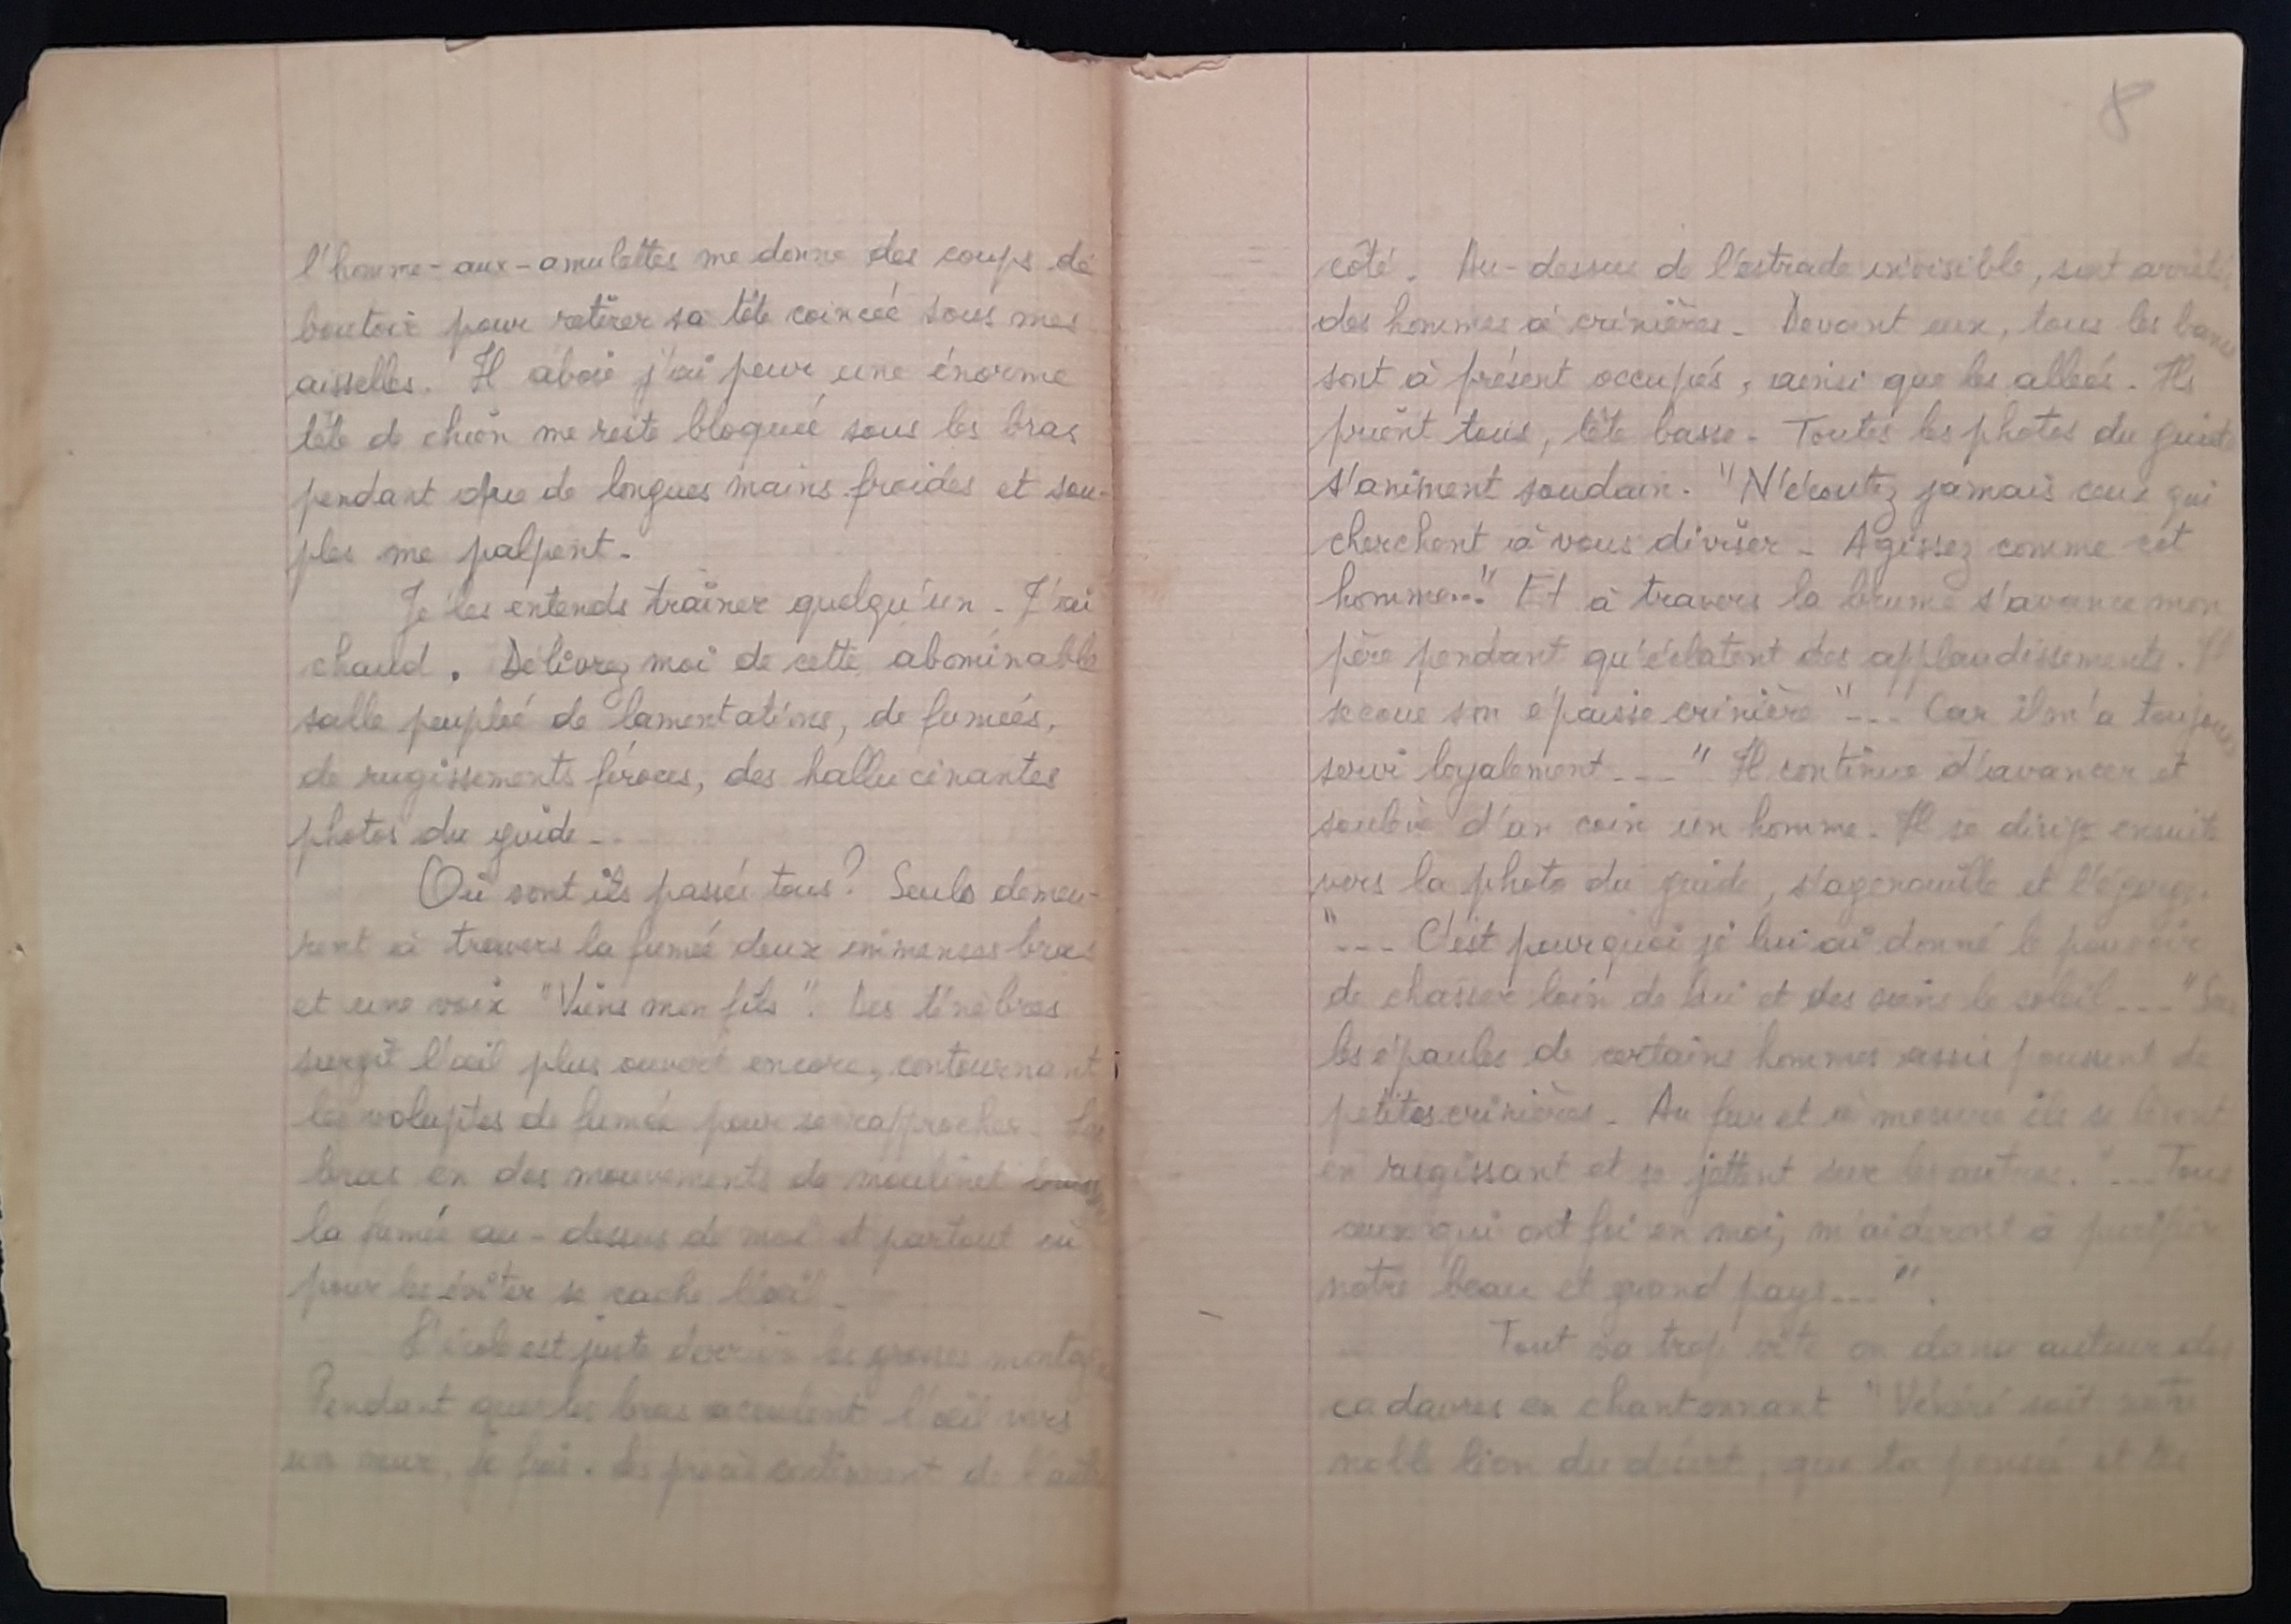 l'homme-aux-amulettes me donne des coups de
boutoir pour retirer sa tête coincée sous mes
aisselles. Il aboie j'ai peur une énorme
tête de chien me reste bloquée sous les bras
pendant que de longues mains froides et sou-
ples me palpent.
Je les entends traîner quelqu'un. J'ai
chaud. Délivrez moi de cette abominable
salle peuplée de lamentations, de fumées,
de rugissements féroces, des hallucinantes
photos du guide...
Où sont ils passés tous? Seuls demeu-
rent à travers la fumée deux immenses bras
et une voix "Viens mon fils". Des ténèbres
surgit l'œil plus ouvert encore, contournant
les voluptes de fumée pour se rapprocher. Les
bras en des mouvements de moulinet
la fumée au-dessus de moi et partout où
pour les éviter se cache l'œil.
L'école est juste derrière les grosses
Pendant que les bras acculent l'œil vers
un mur, je fuis. continuent de l'autre
8
côté. Au-dessus de l'estrade invisible, sont arrêtés
des hommes à crinières. Devant eux, tous les bancs
sont à présent occupés, ainsi que les allées. Ils
prient tous, tête basse. Toutes les photos du guide
s'animent soudain. "N'écoutez jamais ceux qui
cherchent à vous diviser. Agissez comme cet
homme..." Et à travers la brume s'avance mon
père pendant qu'éclatent des applaudissements. Il
secoue son épaisse crinière "... Car il m'a toujours
servi loyalement ..." Il continue d'avancer et
soulève d'un coin un homme. Il se dirige ensuite
vers la photo du guide, s'agenouille et l'égorge.
"... C'est pourquoi je lui ai donné le pouvoir
de chasser loin de lui et des siens le soleil ..." Sur
les épaules de certains hommes assis poussent de
petites crinières. Au fur et à mesure ils se lèvent
en rugissant et se jettent sur les autres. "... Tous
ceux qui ont foi en moi, m'aideront à purifier
notre beau et grand pays...".
Tout va trop vite on danse autour des
cadavres en chantonnant "Vénéré soit notre
noble lion du désert, que ta pensée et tes